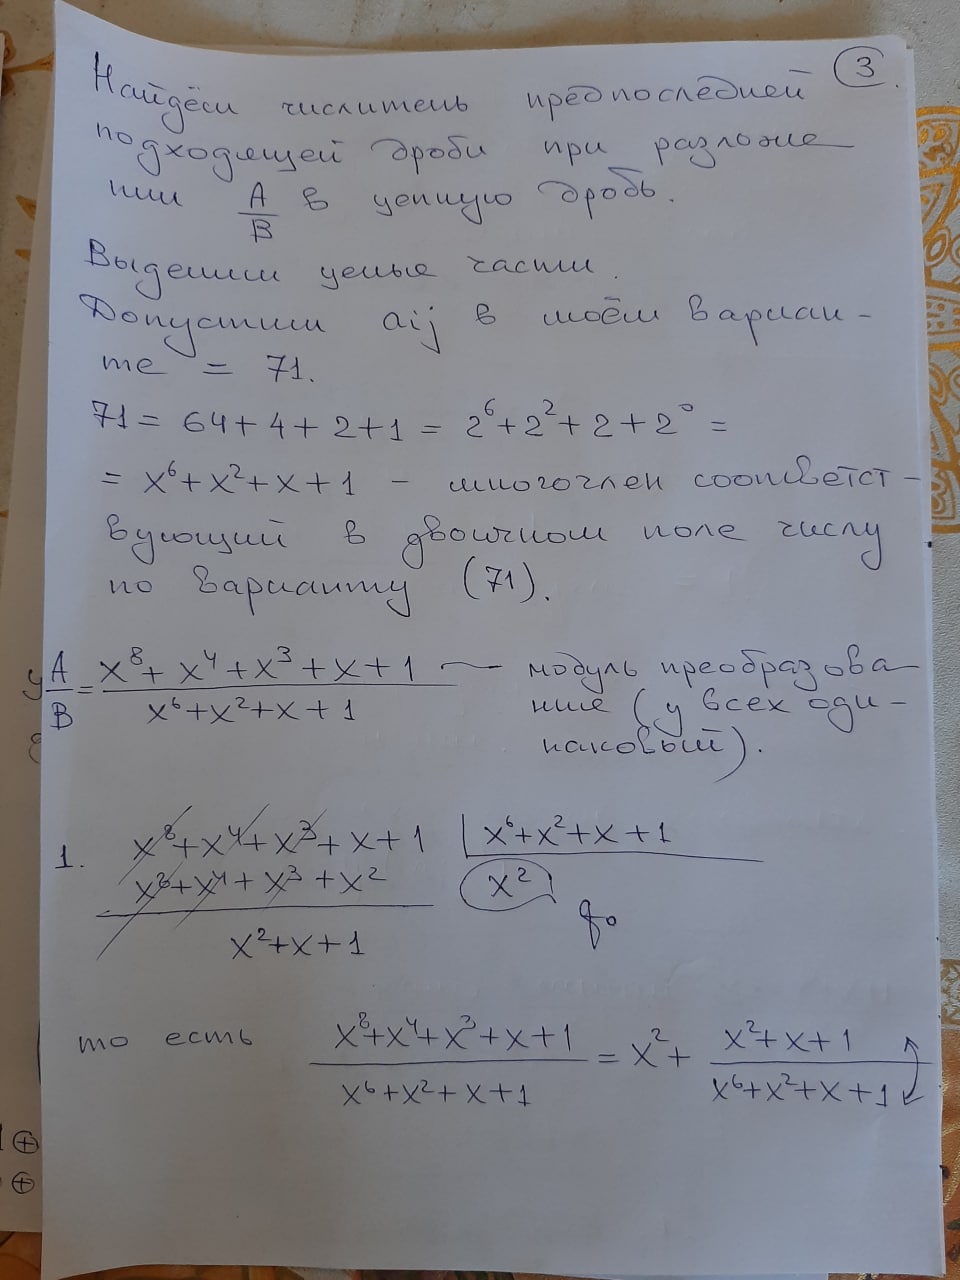 3
Найдём числитель предпоследней
подходящей дроби при разложе
нии A/B в цепную дробь.
Выделим целые части.
Допустим aij в моём вариан-
те = 71.
71 = 64 + 4 + 2 + 1 = 2⁶ + 2² + 2 + 2⁰ =
= x⁶ + x² + x + 1 – многочлен соответст-
вующий в двоичном поле числу
по варианту (71).
A/B = (x⁸ + x⁴ + x³ + x + 1)/(x⁶ + x² + x + 1) — модуль преобразова
ние (у всех оди-
наковый).
1. x⁸ + x⁴ + x³ + x + 1 | x⁶ + x² + x + 1
x⁸ + x⁴ + x³ + x² x² q₀
x² + x + 1
то есть (x⁸ + x⁴ + x³ + x + 1)/(x⁶ + x² + x + 1) = x² + (x² + x + 1)/(x⁶ + x² + x + 1)
⊕
⊕